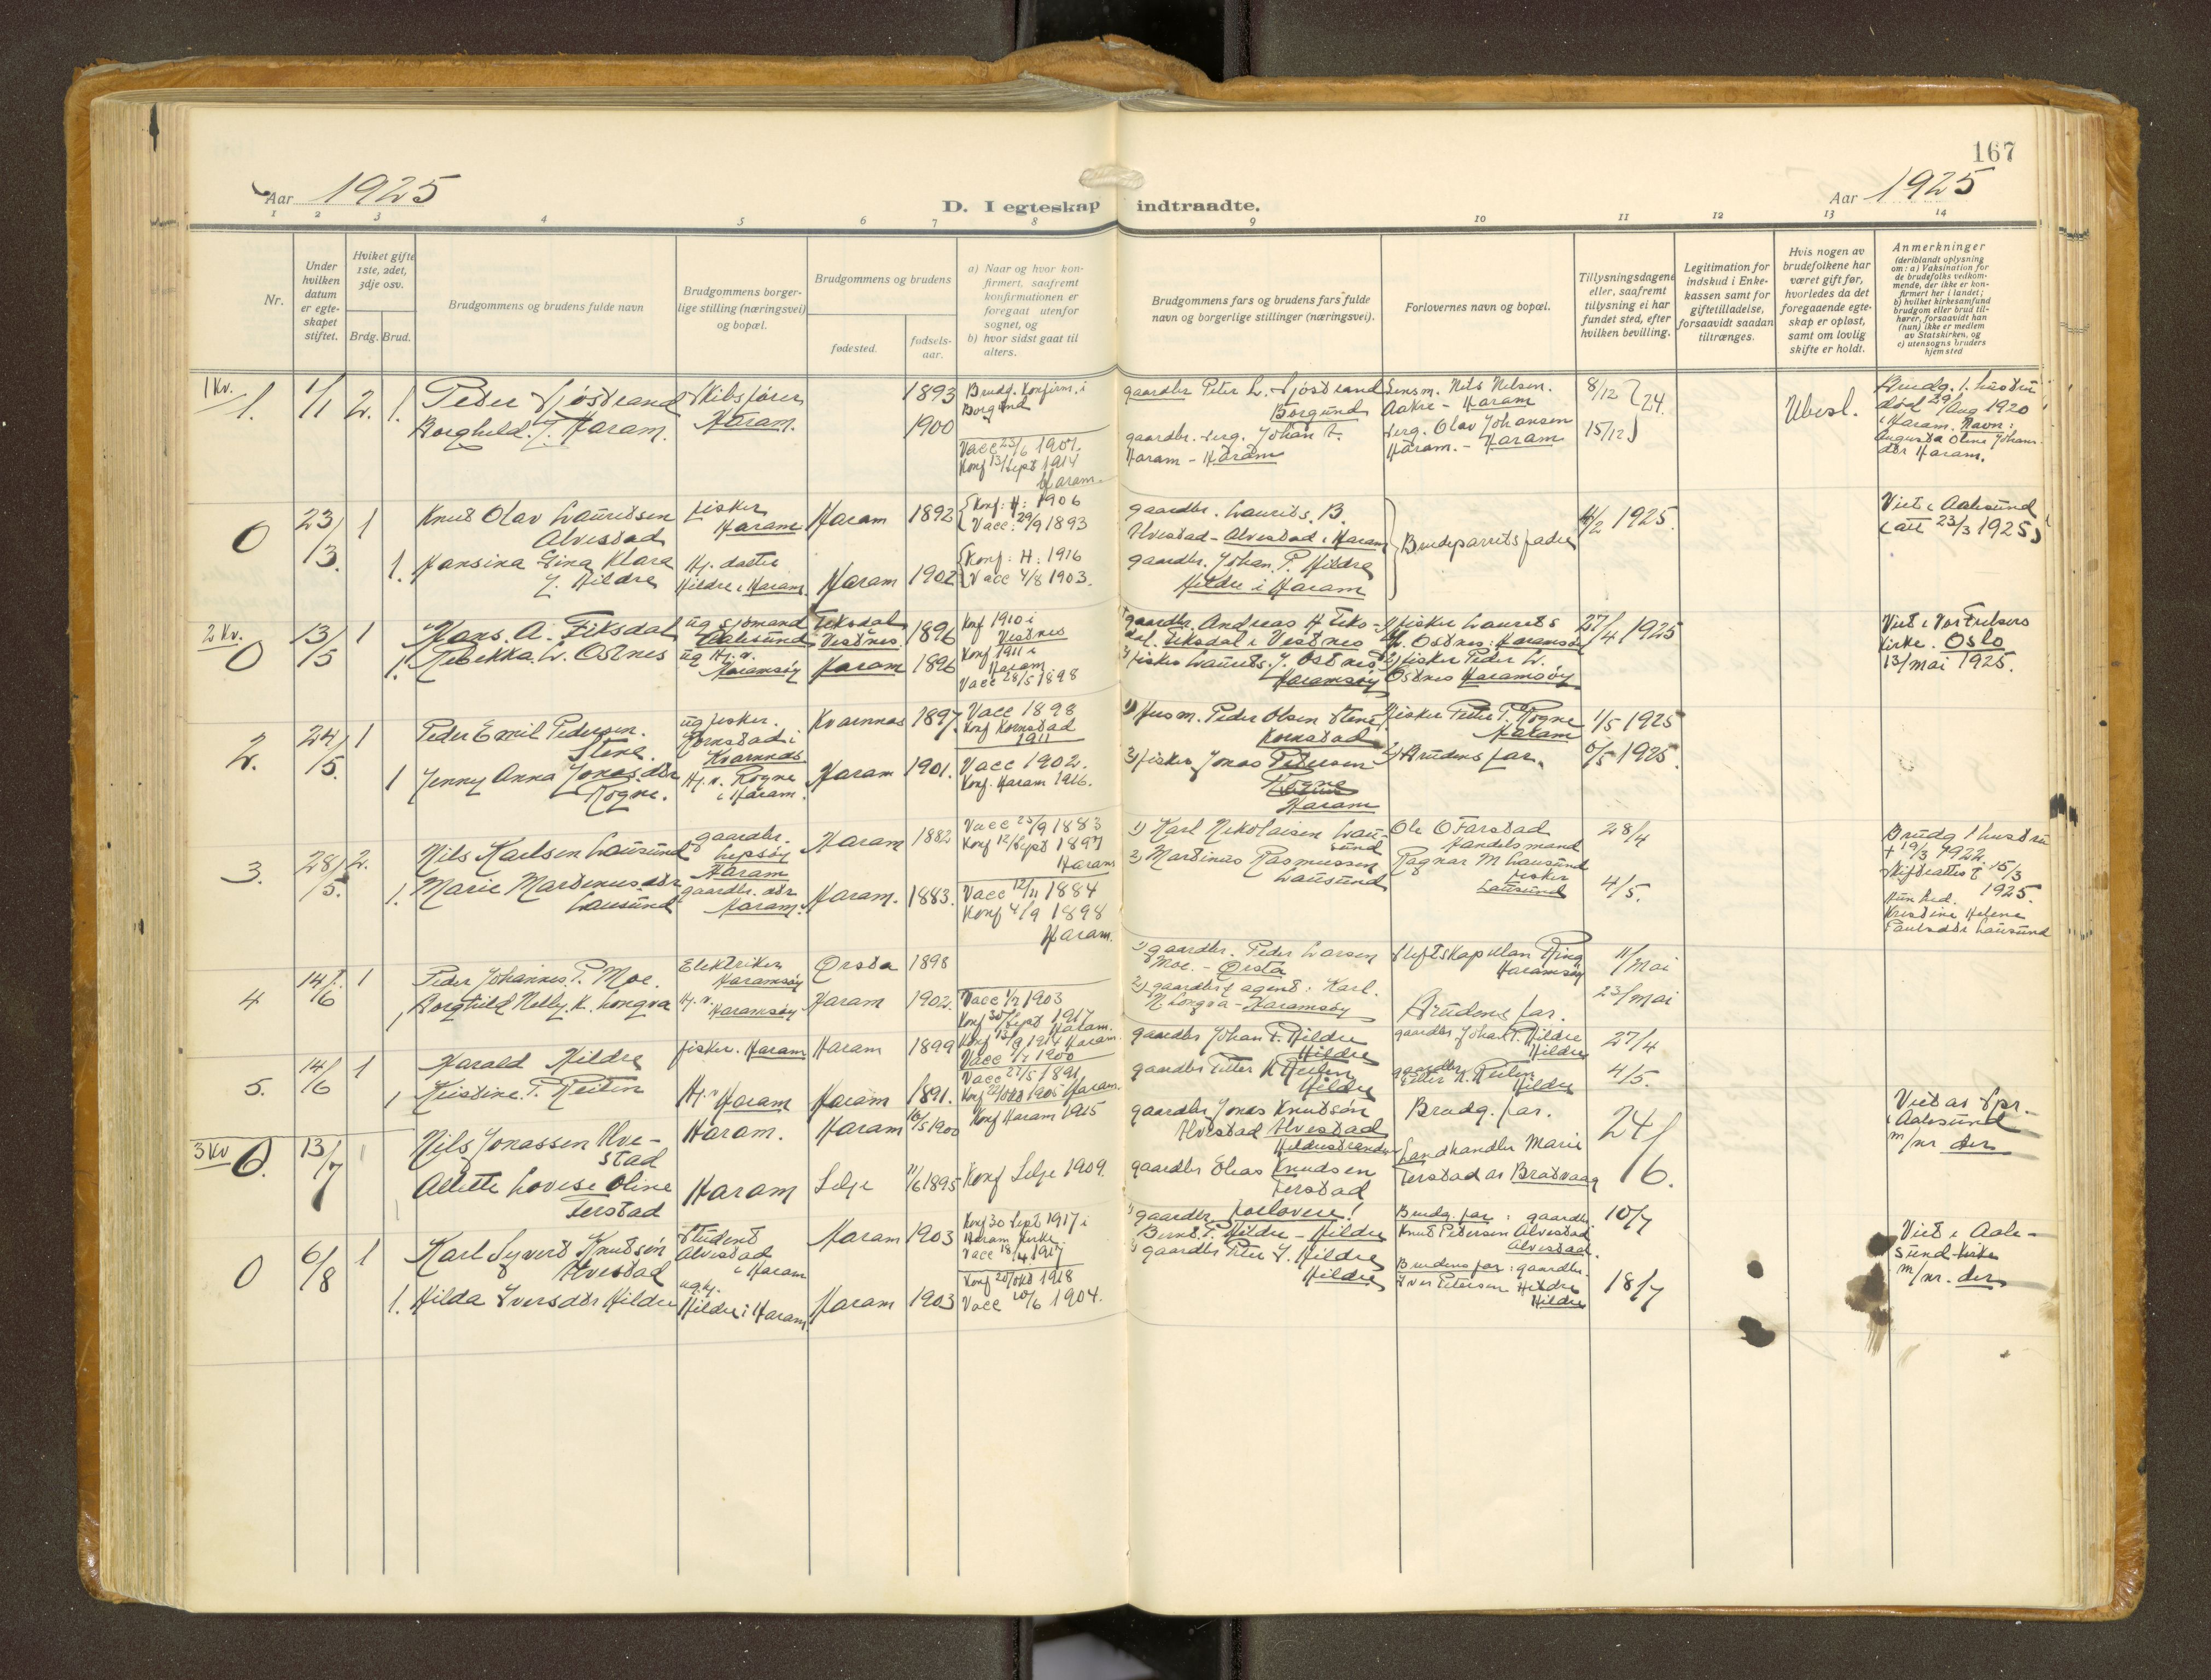 167
Aar 1925
D. I egteskap indtraadte.
Aar 1925
1 2 3 4 5 6 7 8 9 10 11 12 13 14
Nr.
Under
hvilken
datum
er egte-
skapet
stiftet.
Hviket gifte
1ste, 2det,
3dje osv.
Brdg. Brud.
Brudgommens og brudens fulde navn
Brudgommens borger-
lige stilling (næringsvei)
og bopæl.
Brudgommens og brudens
fødested.
fødsels-
aar.
a) Naar og hvor kon-
firmert, saafremt
konfirmationen er
foregaat utenfor
sognet, og
b) hvor sidst gaat til
alters.
Brudgommens fars og brudens fars fulde
navn og borgerlige stillinger (næringsvei).
Forlovernes navn og bopæl.
Tillysningsdagene
eller, saafremt
tillysning ei har
fundet sted, efter
hvilken bevilling.
Legitimation for
indskud i Enke-
kassen samt for
giftetilladelse,
forsaavidt saadan
tiltrænges.
Hvis nogen av
brudefolkene har
været gift før,
hvorledes da det
foregaaende egte-
skap er opløst,
samt om lovlig
skifte er holdt.
Anmerkninger
(deriblandt oplysning
om: a) Vaksination for
de brudefolks vedkom-
mende, der ikke er kon-
firmert her i landet;
b) hvilket kirkesamfund
brudgom eller brud til-
hører, forsaavidt han
(hun) ikke er medlem
av Statskirken, og
c) utensogns bruders
hjemsted
1 Kv.
1. 1/1 2. 1.
Peder Sjöstrand
Borghild J. Haram.
Skibsfører
Haram.
1893
1900
Brudg. Konfirm. i
Borgund
Vacc 23/6 1901.
Konf 13/Sept 1914
Haram.
gaardbr Peter L. Sjöstrand
Borgund
gaardbr. Serg. Johan A.
Haram - Haram
Lensm. Nils Nilsen.
Aakre - Haram
Serg. Olav Johansen
Haram. - Haram
8/12 } 24.
15/12
Ubesl.
Brudg. 1. hustru
död 29/Aug 1920
i Haram. Navn:
Augusta Oline Johans-
dtr Haram.
0 23/3. 1 1.
Knut Olav Lauritsen
Alvestad
Hansina Gina Klara
J. Hildre
fisker
Haram
Hj. datter
Hildre i Haram.
Haram 1892
Haram 1902
Konf: H: 1906
Vacc: 29/9 1893
Konf: H: 1916
Vacc 4/8 1903.
gaardbr. Laurits. B.
Ulvestad - Alvestad i Haram
gaardbr. Johan P. Hildre
Hildre i Haram
Brudeparrets fædre
11/2 1925.
Viet i Aalesund
(att 23/3 1925)
2 Kv.
0 13/5 1 1.
Hans. A. Fiksdal
Rebekka. L. Ostnes
ug sjömand
Aalesund
ug Hj. v.
Haramsöy
Fiksdal
Vestnes. 1896
Haram 1896
Konf 1910 i
Vestnes
Konf 1911 i
Haram
Vacc 28/5 1898
gaardbr. Andreas H Fiks-
dal. Fiksdal i Vestnes
fisker Laurits. J. Ostnes
Haramsöy
fisker Laurits
Ostnes: Haramsöy
2) fisker Peder L.
Ostnes Haramsöy
27/4 1925
Viet i Vor Frelsers
Kirke. Oslo
13/mai 1925.
2. 24/5. 1 1
Peder Emil Pedersen.
Stene.
Jenny Anna Jonasdtr
Rogne.
ug fisker.
Kornstad i
Kvarnnes
Hj. v. Rogne
i Haram.
Kvarnnes 1897.
Haram 1901.
Vacc 1898
Konf Kornstad
1911
Vacc 1902.
Konf. Haram 1916.
1) Husm. Peder Olsen Stene
Kornstad
2) fisker Jonas Petersen
Rogne
Haram
fisker Petter P. Rogne
Haram
2) Brudens far.
1/5 1925
6/5 1925.
3. 28/5. 2. 1.
Nils Karlsen Lausund
Marie Martinusdtr
Lausund
gaardbr.
Lepsöy
Haram
gaardbr. dtr
Haram.
Haram 1882
Haram. 1883.
Vacc 25/9 1883
Konf 12/Sept 1897
Haram
Vacc 12/11 1884
Konf 4/9 1898
Haram.
1) Karl Nikolaisen Lau-
sund
2) Martinus Rasmussen
Lausund
Ole O Farstad
Handelsmand
Ragnar M Lausund
fisker
Lausund
28/4
4/5.
Brudg 1 hustru
† 19/3 1922.
Skifteattest 15/3
1925.
Hun hed.
Kristine Helene
Paulsdtr Lausund
4 14/6 1
Peder Johannes. P. Moe.
Borghild Nelly. K. Longva
Elektriker
Haramsöy
Hj. v.
Haramsöy.
Ørsta 1898
Haram 1902.
Vacc 1/7 1903
Konf 30/Sept 1917
Haram.
1) gaardbr. Peder Larsen
Moe. - Ørsta
2) gaardbr / agent: Karl.
N. Longva - Haramsöy
Stiftskapellan Ring
Haramsöy
Brudens far.
11/Mai
23/Mai
5. 14/6 1 1
Harald Hildre
Kristine. P. Reiten
fisker. Haram
Hj. v Haram
Haram 1899
Haram 1891.
Konf 13/9 1914 Haram.
Vacc 1/7 1900
Vacc 27/5 1891
Konf 22/okt 1905 Haram.
gaardbr Johan P. Hildre
Hildre
gaardbr Petter K Reiten
Hildre
gaardbr Johan P. Hildre
Hildre
gaardbr
Petter K. Reiten
Hildre
27/4
4/5.
3 Kv
0. 13/7 1
Nils Jonassen Ulve-
stad
Allette Lovise Oline
Ferstad
Haram.
Haram
Haram 16/5 1900
Selje 11/6 1895
Konf Haram 1915
Konf Selje 1909.
gaardbr Jonas Knutsön
Ulvestad Ulvestad
Hildrestranden
gaardbr Elias Knudsen
Ferstad
Brudg. far.
Landhandler Marie
Ferstad av Bratvaag
24/6.
Viet av Spr.
i Aalesund
m/nr der
0 6/8 1 1.
Karl Syvert Knutsön
Ulvestad
Hilda Iversdtr Hildre
Student
Alvestad
i Haram
ug. hj.
Hildre i Haram
Haram 1903
Haram 1903
Konf 30 Sept 1917 i
Haram Kirke
Vacc 18/4 1917
Konf 20/okt 1918
Vacc 20/6 1904.
gaardbr forlovere!
Bernt. P. Hildre - Hildre
gaardbr Peter J. Hildre
Hildre
Brudg. far: gaardbr.
Knut Petersen Alvestad
Alvestad.
Brudens far: gaardbr.
Iver Petersen Hildre
Hildre
10/7
18/7
Viet i Aale-
sund kirke
m/nr. der